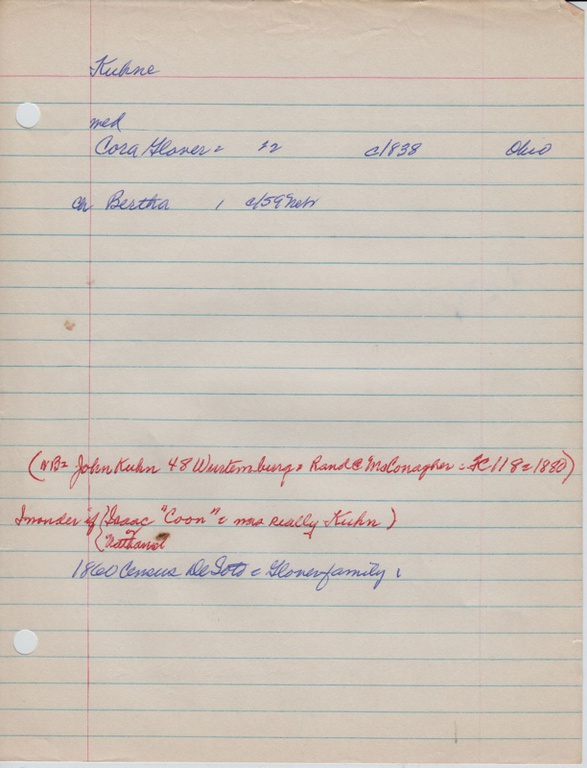 Kuhne
med
Cora Glover = 22 c/1838 Ohio
ch Bertha 1 c/59 Neb
(NB= John Kuhn 48 Wurtemburg = Rand @ McConagher = 1880)
I wonder if (Isaac "Coon" = was really Kuhn)
or
(Nathaniel
1860 Census DeSoto = Glover family 1